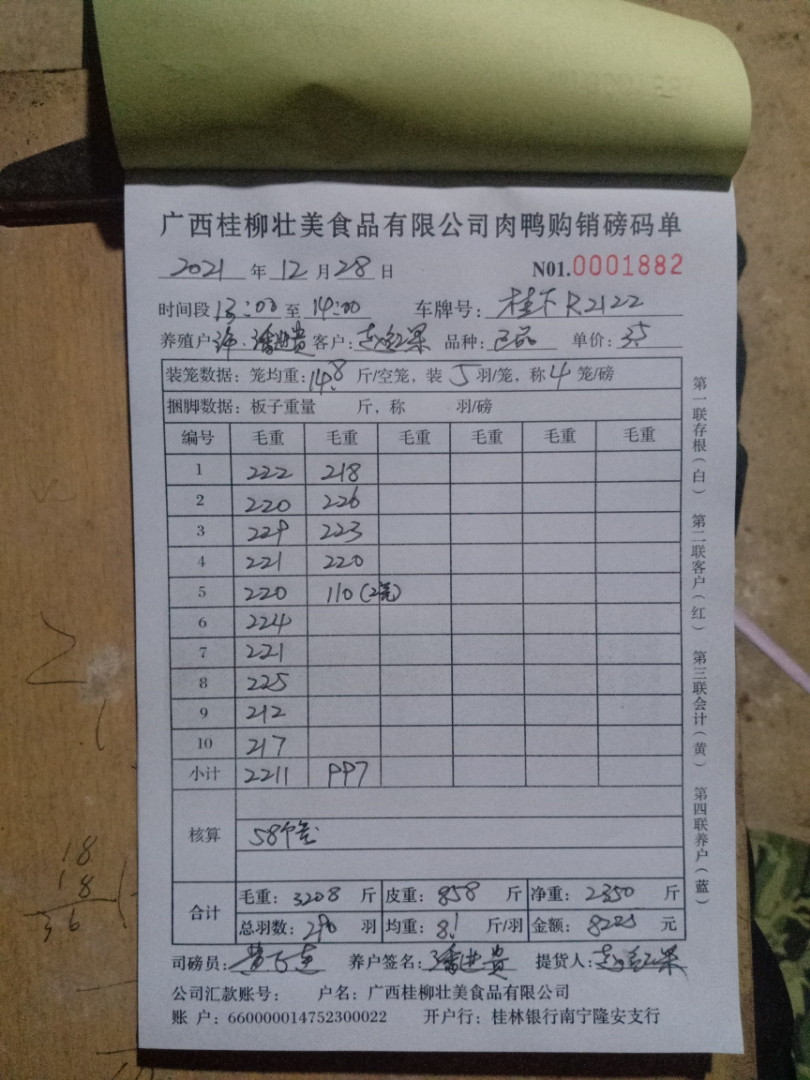 广西桂柳壮美食品有限公司肉鸭购销磅码单
2021 年 12 月 28 日 N01.0001882
时间段 13:00 至 14:00 车牌号: 桂 R2122
养殖户 潘进贵 客户: 品种: 单价: 3.5
装笼数据: 笼均重: 14.8 斤/空笼, 装 5 羽/笼, 称 4 笼/磅
捆脚数据: 板子重量 斤, 称 羽/磅
编号 毛重 毛重 毛重 毛重 毛重 毛重
1 222 218
2 220 226
3 229 223
4 221 220
5 220 110 (2笼)
6 224
7 221
8 225
9 212
10 217
小计 2211 997
核算 58个笼
合计 毛重: 3208 斤 皮重: 858 斤 净重: 2350 斤
总羽数: 290 羽 均重: 8.1 斤/羽 金额: 8225 元
司磅员: 养户签名: 潘进贵 提货人:
公司汇款账号: 户名: 广西桂柳壮美食品有限公司
账 户: 660000014752300022 开户行: 桂林银行南宁隆安支行
第一联存根(白) 第二联客户(红) 第三联会计(黄) 第四联养户(蓝)
18
18
36